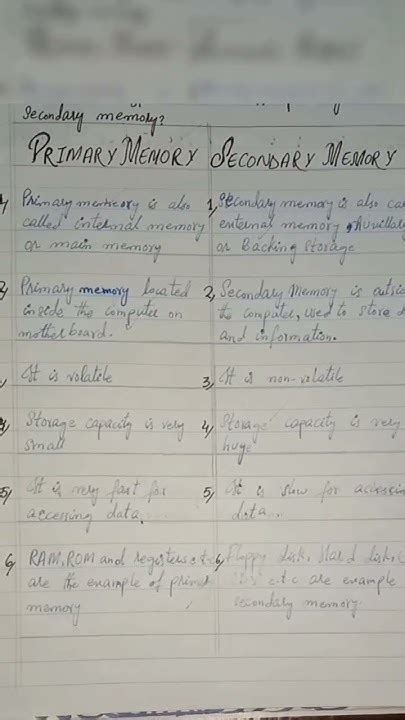 Secondary memory?
PRIMARY MEMORY
SECONDARY MEMORY
1) Primary memory is also
called internal memory
or main memory
1) Secondary memory is also
external memory, Auxillary
or Backing Storage
2) Primary memory located
inside the computer on
motherboard.
2) Secondary Memory is
the computer, used to store
and information.
It is volatile
3) It is non-volatile
4) Storage capacity is very
small
4) Storage capacity is very
huge
5) It is very fast for
accessing data.
5) It is slow for
data...
6) RAM, ROM and registers etc
are the example of
memory
6) Floppy disk, Hard disk,
etc are example
secondary memory.